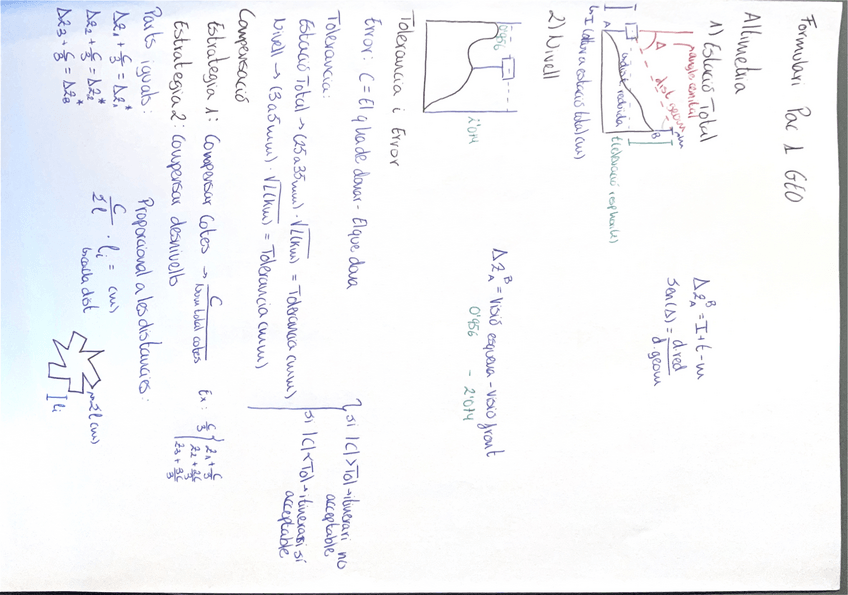 Formulari Pac 1 GEO
Altimetria
1) Estació Total
angle zenital
dist geom
m
Δ
I
A
B
distància reduïda
t (elevació esphaoile)
h I (altura estació total (m))
Δz_A^B = I + t - m
sen(Δ) = d red / d. geom
2) Nivell
0'956
2'074
Δz_A^B = visió esquena - visió front
0'956 - 2'074
Tolerancia i Error
Error: C = El q ha de donar - El que dona
Tolerancia:
Estació Total → (25 a 35 mm) · √L(km) = Tolerancia (mm)
Nivell → (3 a 5 mm) · √L(km) = Tolerancia (mm)
si |C| > Tol → itinerari no acceptable
si |C| < Tol → itinerari sí acceptable
Compensació
Estrategia 1: Compensar Cotes → C / núm total cotes
Ex: C/3 { z1 + C/3
z2 + 2C/3
z3 + 3C/3
Estrategia 2: Compensar desnivells
Parts iguals:
Δz1 + C/3 = Δz1*
Δz2 + C/3 = Δz2*
Δz3 + C/3 = Δz3*
Proporcional a les distancies:
C / Σl · li = (m)
cada dist
Σl (m)
li